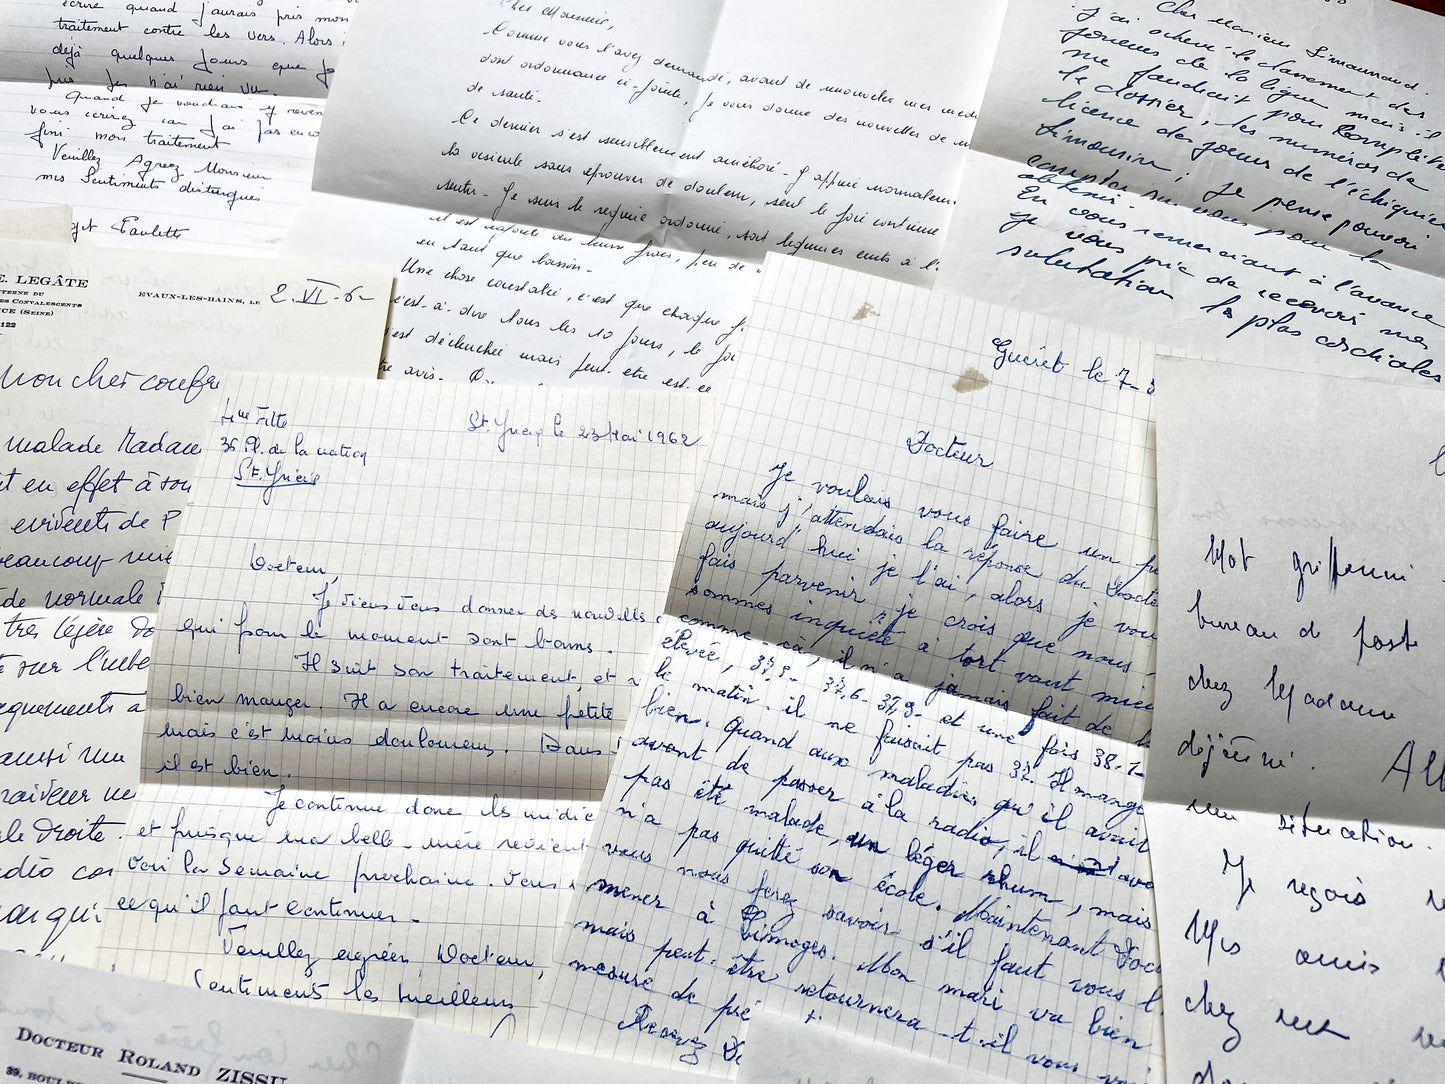 écrire quand j'aurais pris mon
traitement contre les vers. Alors
déjà quelques jours que j
pris j'en n'ai rien vu.
Quand je voudrais y reven
vous écrirez car j'ai pas enco
fini mon traitement
Veuillez Agréez Monsieur
mes Sentiments distingués
get Paulette
Cher Monsieur,
Comme vous l'avez demandé, avant de renouveler mes médi
dont ordonnance ci-jointe, je vous donne des nouvelles de m
de santé.
Ce dernier s'est sensiblement amélioré. J'appuie normalem
la vésicule sans éprouver de douleur, seul le foie continue
sentir. Je suis le régime ordonné, soit légumes cuits à l'
en tant que boisson.
Une chose constatée, c'est que chaque f
c'est-à-dire tous les 10 jours, le fo
est déclenchée mais peut-être est-ce
re avis.
Cher Monsieur Simonnaud.
J'ai achevé le classement des
joueurs de la ligue mais il
me faudrait pour compléter
le dossier, les numéros de
licence des joueurs de l'échiquier
Limousin; Je pense pouvoir
compter sur vous pour la
obtenir.
En vous remerciant à l'avance
je vous prie de recevoir mes
salutation les plus cordiales
E. LEGÂTE
TERNE DU
ES CONVALESCENTS
CE (SEINE)
122
EVAUX-LES-BAINS, LE 2.VI.6
Mon cher confr
malade Madame
it en effet à son
evidents de P
beaucoup mie
de normale
très légère do
sur l'urbe
quements a
aussi une
le droite.
dio co
ou qu'i
Mme Fitte
36 Pl. de la nation
St. Yrieix
St. Yrieix le 23 Mai 1962
Docteur,
Je viens vous donner des nouvelles
qui pour le moment sont bonnes.
Il suit son traitement, et
bien manger. Il a encore une petite
mais c'est moins douloureux. Dans
il est bien.
Je continue donc les médic
et puisque ma belle-mère revient
voir la semaine prochaine. Vous
ce qu'il faut continuer.
Veuillez agréer, Docteur,
Sentiments les meilleurs
Guéret le 7-
Docteur
Je voulais vous faire un p
mais j'attendais la réponse du Docte
aujourd'hui je l'ai, alors je vou
fais parvenir; je crois que nous
sommes inquiété à tort vaut mieu
comme ça, il n'a jamais fait de
élevée, 37,5- 37,6- 37,9- et une fois 38-1-
le matin il ne faisait pas 37. Il mange
bien. Quand aux maladies qu'il avait
avant de passer à la radio, il avait
pas été malade, un léger rhum, mais
n'a pas quitté son école. Maintenant Doc
vous nous ferez savoir s'il faut vous l
mener à Limoges. Mon mari va bien
mais peut-être retournera-t-il vous
mesure de pré
Recevez
Mot griffonné
bureau de poste
chez Madame
déjeuné.
Alb
un situation.
Je reçois
Mes amis
chez
DOCTEUR ROLAND ZISSU
39, BOULE